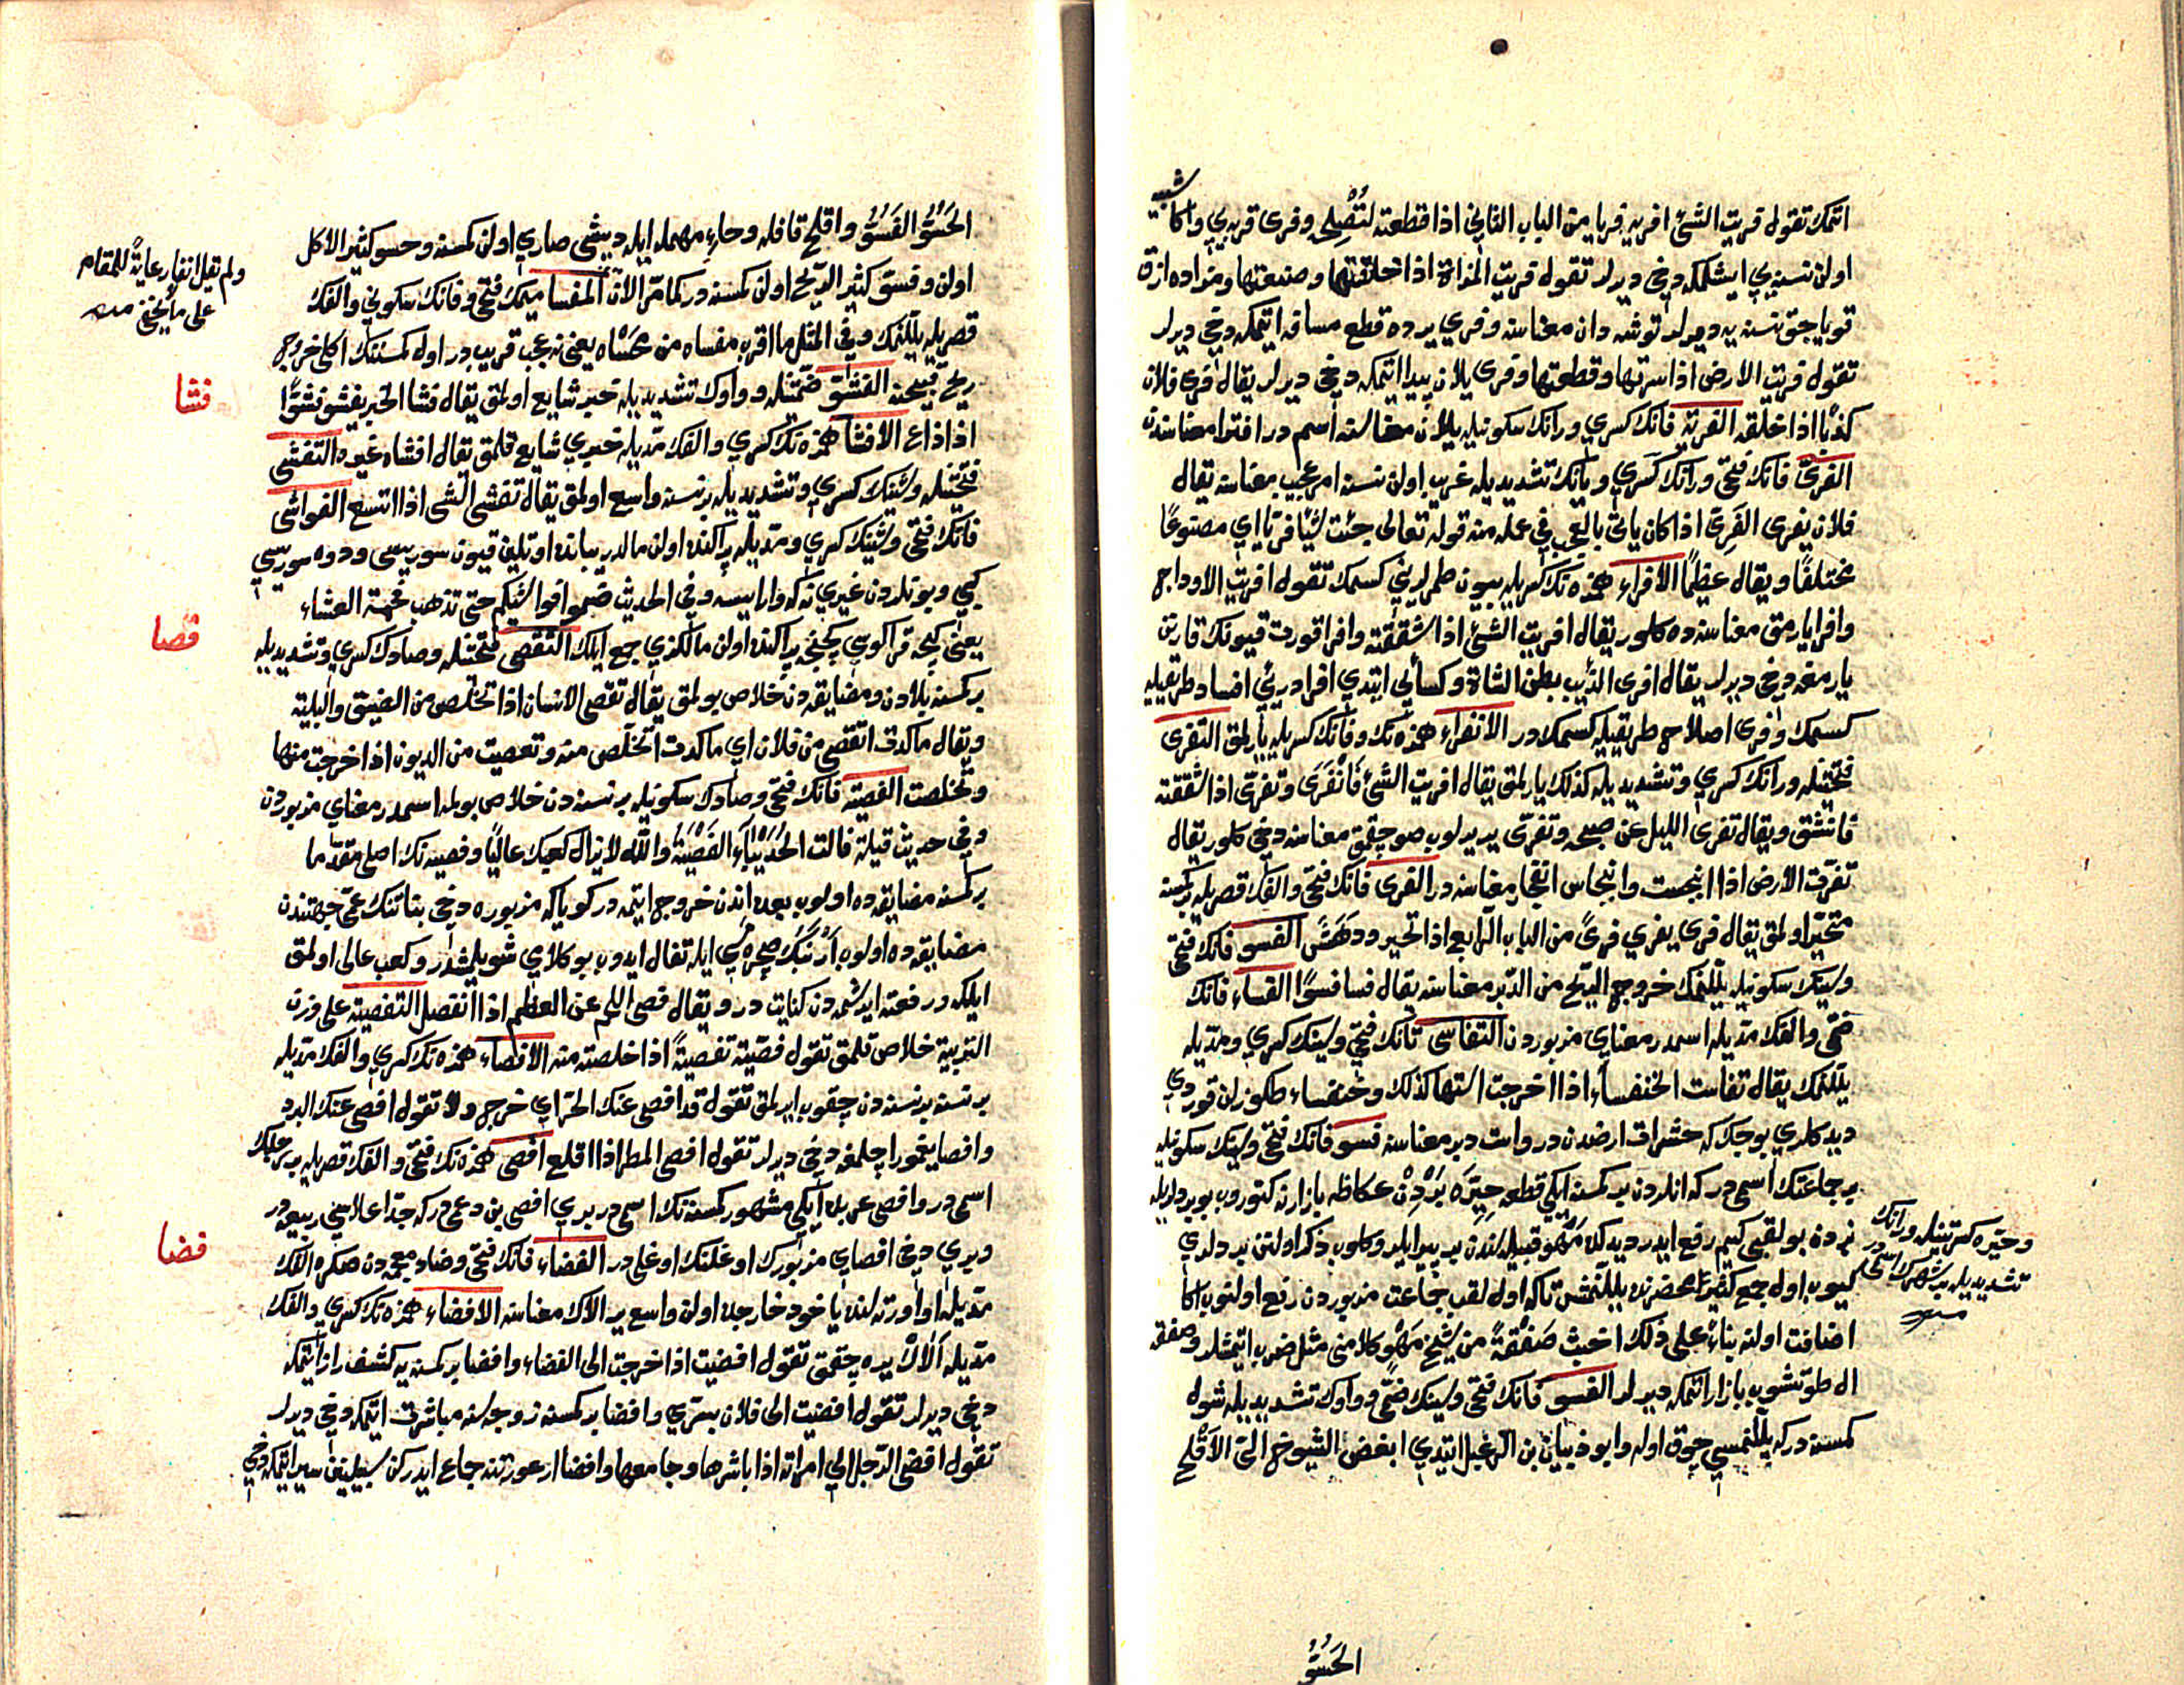 اتمك تقول فريت الشئ افريه فريا من الباب الثاني اذا قطعته لتصلح وفرى قربه يي واكا شبيه
اولن نسنه يي ايشلمكه دخي ديرلر تقول فريت المزادة اذا خلقتها وصنعتها ومزاده ازق
قوياجق نسنه يه ديرلر توشه دان معناسنه وفري يرده قطع مسافه اتمكه دخي ديرلر
تقول فريت الارض اذا سرتها وقطعتها وفرى يلان پيدا اتمكه دخي ديرلر يقال فرى فلان
كذبا اذا خلقه الفرية فانك كسري ورانك سكونيله يلان معناسنه اسم در افترا معناسندن
الفرى فانك فتحي ورانك كسري ويانك تشديديله غريب اولن نسنه امر عجيب معناسنه يقال
فلان يفرى الفرى اذا كان ياتي بالعجب في عمله منه قوله تعالى جئت شيئا فريا اي مصنوعا
مختلقا ويقال عظيما الافراء همزه نك كسريله بيون طمرلريني كسمك تقول افريت الاوداج
وافرا يارمق معناسنه ده كلور يقال افريت الشئ اذا شققته وافرا قورت قيونك قارنن
يارمغه دخي ديرلر يقال افرى الذئب بطن الشاة وكسائي ايتدي افرا دريئي افساد طريقيله
كسمك وفرى اصلاح طريقيله كسمكدر الانفراء همزه نك وفانك كسريله يارلمق التفرى
فتحتينله ورانك كسري وتشديديله كذلك يارلمق يقال افريت الشئ فانفرى وتفرى اذا شققته
فانشق ويقال تفرى الليل عن صبحه وتفرى ير يريلوب صو چقمق معناسنه دخي كلور يقال
تفرت الارض اذا انبجست وانبجاس انفجار معناسنه در الفرى فانك فتحي والفك قصريله بر كمسنه
متحير اولمق يقال فرى يفري فرى من الباب الرابع اذا تحير ودهش الفسو فانك فتحي
وسينك سكونيله يللنمك خروج الريح من الدبر معناسنه يقال فسا فسوا الفساء فانك
ضمي والفك مديله اسمدر معناي مزبوردن التفاسى تانك فتحي وسينك كسري ومديله
يللنمك يقال تفاست الخنفساء اذا اخرجت استها كذلك وخنفساء طكوزلن قوردي
ديدكلري بوجكه كه حشرات ارضدندر واست دبر معناسنه فسو فانك فتحي وسينك سكونيله
بر جماعتك اسمى در كه انلردن بر كمسنه ايكي قطعه حبره بردن عكاظه بازارنه كتوروب بو بردلريله
نردن بو لقبي كيم رفع ايدر ديدكده مهو قبيله سندن بر پير ايلرو كلوب ذكر اولنن بردلري
كيوب اول جمع كثيرك محضرنده يللنمش تاكه اول لقب جماعت مزبوردن رفع اولنوب اكا
اضافت اولنه بناء على ذلك اخبث صفقة من شيخ مهو كلامني مثل ضرب ايتمشلر وصفقه
ال طوتشوب بازار اتمكه ديرلر الفسو فانك فتحي وسينك ضمي وواوك تشديديله شول
كمسنه در كه يللنمسي چوق اوله وابو ذبيان بن الرعبل ايتدي ابغض الشيوخ الي الاقلح
وحبره كسرتينله ورانك
تشديديله بر شهرك اسمى در
منه
الحسو
الحسو الفسو واقلح قافله وحاء مهمله ايله ديشى صاري اولن كمسنه وحسو كثير الاكل
اولن وفسو كثير الريح اولن كمسنه در كما مر الان المفسا ميمك فتحي وفانك سكوني والفك
قصريله يللنمك وفي المثل ما اقرب مفساه من محساه يعني نه عجب قريبدر اول كمسنك اكلي خروج
ريح قبيحنه الفشو ضمتينله وواوك تشديديله خبر شايع اولمق يقال فشا الخبر يفشو فشوا
اذا ذاع الافشا همزه نك كسري والفك مديله خبري شايع قلمق يقال افشاه غيره التفشى
فتحتينله وشينك كسري وتشديديله بر نسنه واسع اولمق يقال تفشى الشى اذا اتسع الفواشى
فانك فتحي وشينك كسري ومديله پراكنده اولن مالدر يبانده اوتلين قيون سوريسى ودوه سوريسي
كبي وبونلردن غيري نه كه وارايسه وفي الحديث ضموا فواشيكم حتى تذهب فحمة العشاء
يعني كيجه قراكوسي كچنجه پراكنده اولن مالكزي جمع ايلك التفصى فتحتينله وصادك كسري وتشديديله
بر كمسنه بلادن ومضايقه دن خلاص بولمق يقال تفصى الانسان اذا تخلص من الضيق والبلية
ويقال ما كدت اتفصى من فلان اي ما كدت اتخلص منه وتفصيت من الديون اذا خرجت منها
وتخلصت الفصية فانك فتحي وصادك سكونيله بر نسنه دن خلاص بولمه اسمدر معناي مزبوردن
وفي حديث قيلة قالت الحديباء الفصية والله لا يزال كعبك عاليا وفصيه نك اصلي مقدما
بر كمسنه مضايقه ده اولوب بعده اندن خروج ايتمه در كوياكه مزبوره دخي بناتنك عمي جهتندن
مضايقه ده اولوب ارنبك صچره مسي ايله تفال ايدوب بو كلامي سويلمشدر وكعب عالى اولمق
ايلكدر رفعته ايرشمه دن كنايت در ويقال فصى اللحم عن العظم اذا انفصل التفصية على وزن
التربية خلاص قلمق تقول فصيته تفصية اذا خلصته منه الافصاء همزه نك كسري والفك مديله
بر نسنه بر نسنه دن چقوب ايرلمق تقول قد افصى عنك الحر اي خرج ولا تقول افصى عنك البرد
وافصا يغمور اچلمغه دخي ديرلر تقول افصى المطر اذا اقلع افصى همزه نك فتحي والفك قصريله بر رجلك
اسمى در وافصى عربده ايكي مشهور كمسنه نك اسمى در بري افصى بن دعمى در كه جد اعلاسي ربيعه در
وبري دخي افصاي مزبورك اوغلنك اوغلى در الفضاء فانك فتحي وضاد معجمه دن صكره الفك
مديله اوا اورته لنده يا خود خارجده اولن واسع ير الاك معناسنه الافضاء همزه نك كسري والفك
مديله الاك يره چقمق تقول افضيت اذا خرجت الى الفضاء وافضا بر كمسنه يه كشف راز اتمكه
دخي ديرلر تقول افضيت الى فلان بسري وافضا بر كمسنه زوجه سنه مباشرت اتمكه دخي ديرلر
تقول افضى الرجل الى امراته اذا باشرها وجامعها وافضا ار عورتنه جماع ايدركن سبيلينن بر اتمكه دخي
ولم تقل انفا رعاية للمقام
على ما لا يخفى منه
فشا
فصا
فضا